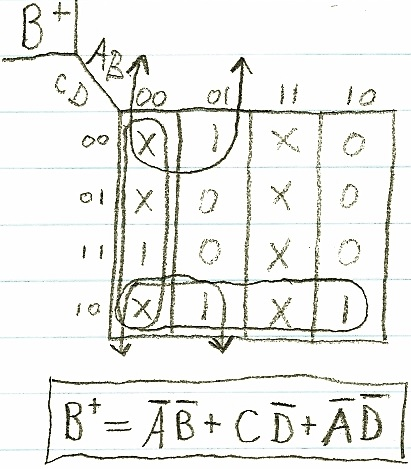 B⁺
AB
CD
00 01 11 10
00 X 1 X 0
01 X 0 X 0
11 1 0 X 0
10 X 1 X 1
B⁺ = A̅B̅ + CD̅ + A̅D̅